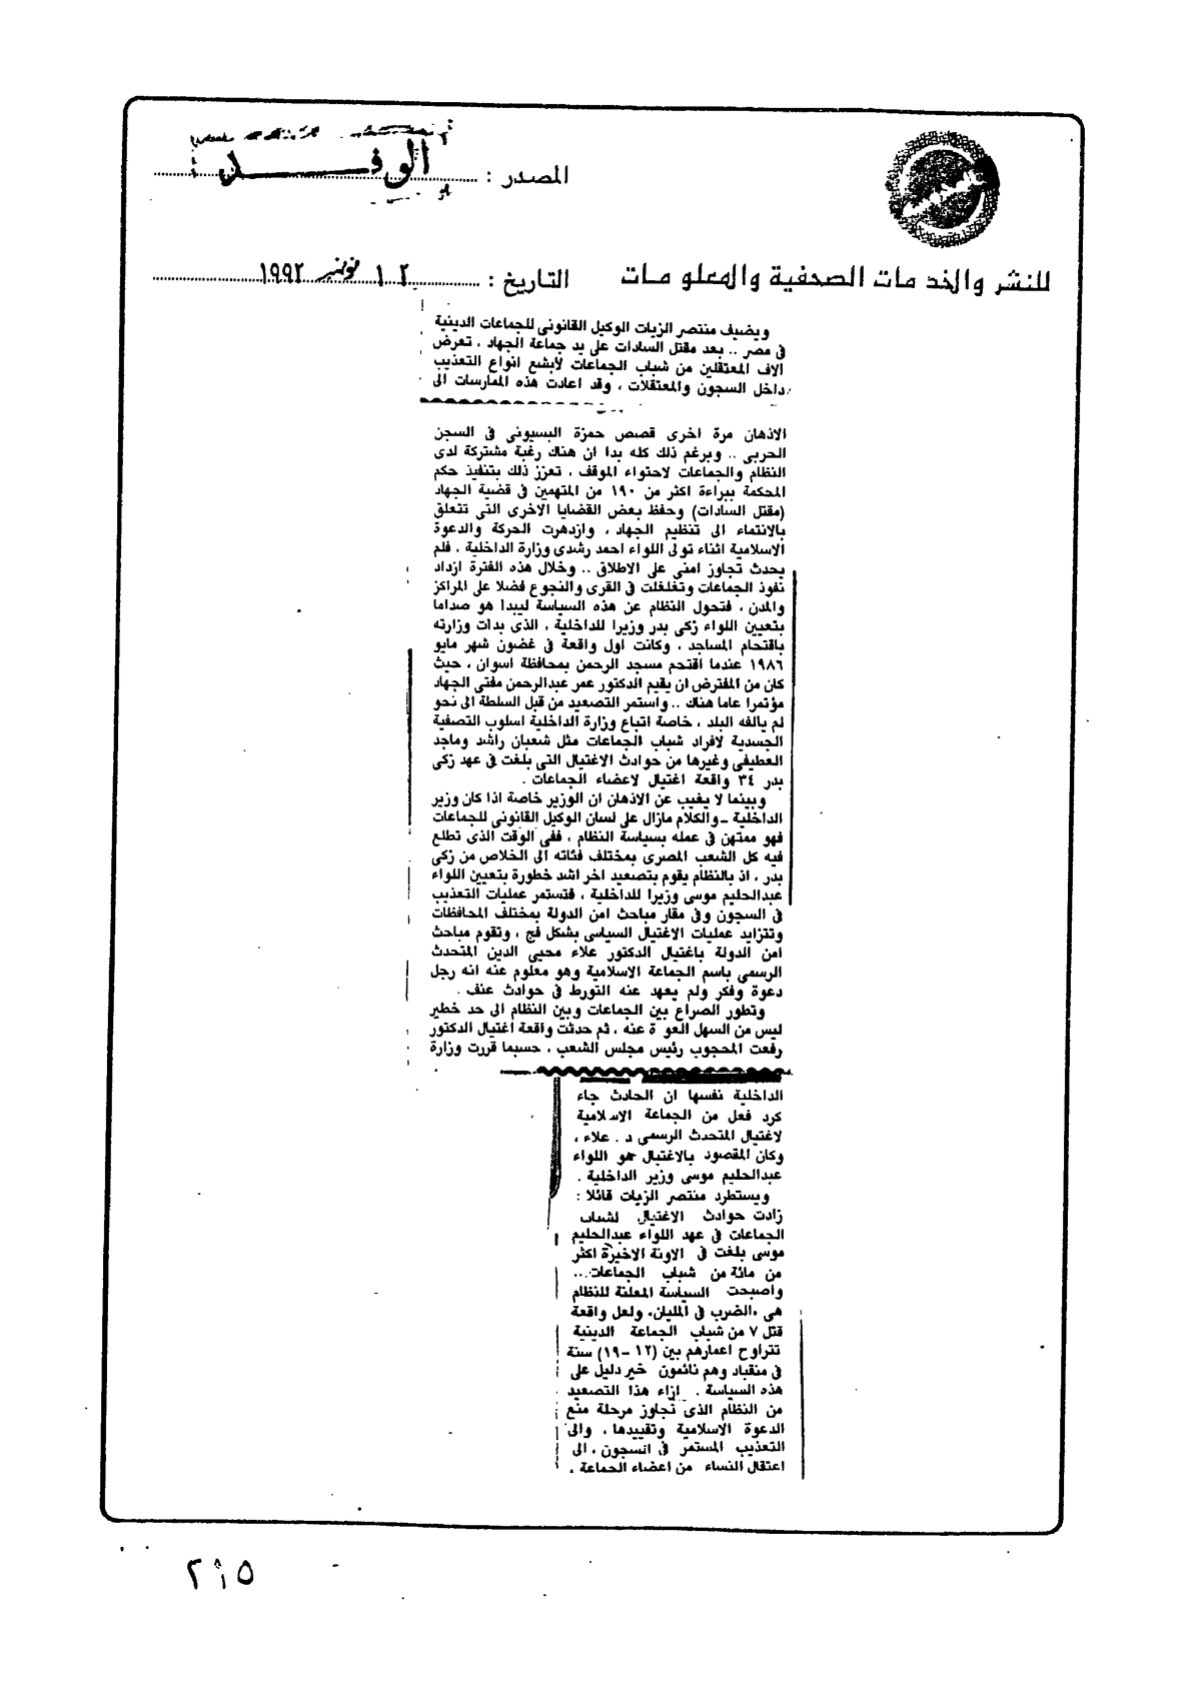 المصدر : الوفد
للنشر والخدمات الصحفية والمعلومات
التاريخ : ١٠٢ نوفمبر ١٩٩٢
ويضيف منتصر الزيات الوكيل القانونى للجماعات الدينية
فى مصر .. بعد مقتل السادات على يد جماعة الجهاد ، تعرض
الاف المعتقلين من شباب الجماعات لابشع انواع التعذيب
داخل السجون والمعتقلات ، وقد اعادت هذه الممارسات الى
الاذهان مرة اخرى قصص حمزة البسيونى فى السجن
الحربى .. وبرغم ذلك كله بدا ان هناك رغبة مشتركة لدى
النظام والجماعات لاحتواء الموقف ، تعزز ذلك بتنفيذ حكم
المحكمة ببراءة اكثر من ١٩٠ من المتهمين فى قضية الجهاد
(مقتل السادات) وحفظ بعض القضايا الاخرى التى تتعلق
بالانتماء الى تنظيم الجهاد ، وازدهرت الحركة والدعوة
الاسلامية اثناء تولى اللواء احمد رشدى وزارة الداخلية ، فلم
يحدث تجاوز امنى على الاطلاق .. وخلال هذه الفترة ازداد
نفوذ الجماعات وتغلغلت فى القرى والنجوع فضلا على المراكز
والمدن ، فتحول النظام عن هذه السياسة ليبدا هو صداما
بتعيين اللواء زكى بدر وزيرا للداخلية ، الذى بدات وزارته
باقتحام المساجد ، وكانت اول واقعة فى غضون شهر مايو
١٩٨٦ عندما اقتحم مسجد الرحمن بمحافظة اسوان ، حيث
كان من المفترض ان يقيم الدكتور عمر عبدالرحمن مفتى الجهاد
مؤتمرا عاما هناك .. واستمر التصعيد من قبل السلطة الى نحو
لم يالفه البلد ، خاصة اتباع وزارة الداخلية اسلوب التصفية
الجسدية لافراد شباب الجماعات مثل شعبان راشد وماجد
العطيفى وغيرها من حوادث الاغتيال التى بلغت فى عهد زكى
بدر ٣٤ واقعة اغتيال لاعضاء الجماعات .
وبينما لا يغيب عن الاذهان ان الوزير خاصة اذا كان وزير
الداخلية - والكلام مازال على لسان الوكيل القانونى للجماعات
فهو ممتهن فى عمله بسياسة النظام ، ففى الوقت الذى تطلع
فيه كل الشعب المصرى بمختلف فئاته الى الخلاص من زكى
بدر ، اذ بالنظام يقوم بتصعيد اخر اشد خطورة بتعيين اللواء
عبدالحليم موسى وزيرا للداخلية ، فتستمر عمليات التعذيب
فى السجون وفى مقار مباحث امن الدولة بمختلف المحافظات
وتتزايد عمليات الاغتيال السياسى بشكل فج ، وتقوم مباحث
امن الدولة باغتيال الدكتور علاء محيى الدين المتحدث
الرسمى باسم الجماعة الاسلامية وهو معلوم عنه انه رجل
دعوة وفكر ولم يعهد عنه التورط فى حوادث عنف .
وتطور الصراع بين الجماعات وبين النظام الى حد خطير
ليس من السهل العو ة عنه ، ثم حدثت واقعة اغتيال الدكتور
رفعت المحجوب رئيس مجلس الشعب ، حسبما قررت وزارة
الداخلية نفسها ان الحادث جاء
كرد فعل من الجماعة الاسلامية
لاغتيال المتحدث الرسمى د . علاء ،
وكان المقصود بالاغتيال هو اللواء
عبدالحليم موسى وزير الداخلية .
ويستطرد منتصر الزيات قائلا :
زادت حوادث الاغتيال لشباب
الجماعات فى عهد اللواء عبدالحليم
موسى بلغت فى الاونة الاخيرة اكثر
من مائة من شباب الجماعات...
واصبحت السياسة المعلنة للنظام
هى «الضرب فى المليان» ولعل واقعة
قتل ٧ من شباب الجماعة الدينية
تتراوح اعمارهم بين (١٢ - ١٩) سنة
فى منقباد وهم نائمون خير دليل على
هذه السياسة . ازاء هذا التصعيد
من النظام الذى تجاوز مرحلة منع
الدعوة الاسلامية وتقييدها ، والى
التعذيب المستمر فى السجون ، الى
اعتقال النساء من اعضاء الجماعة .